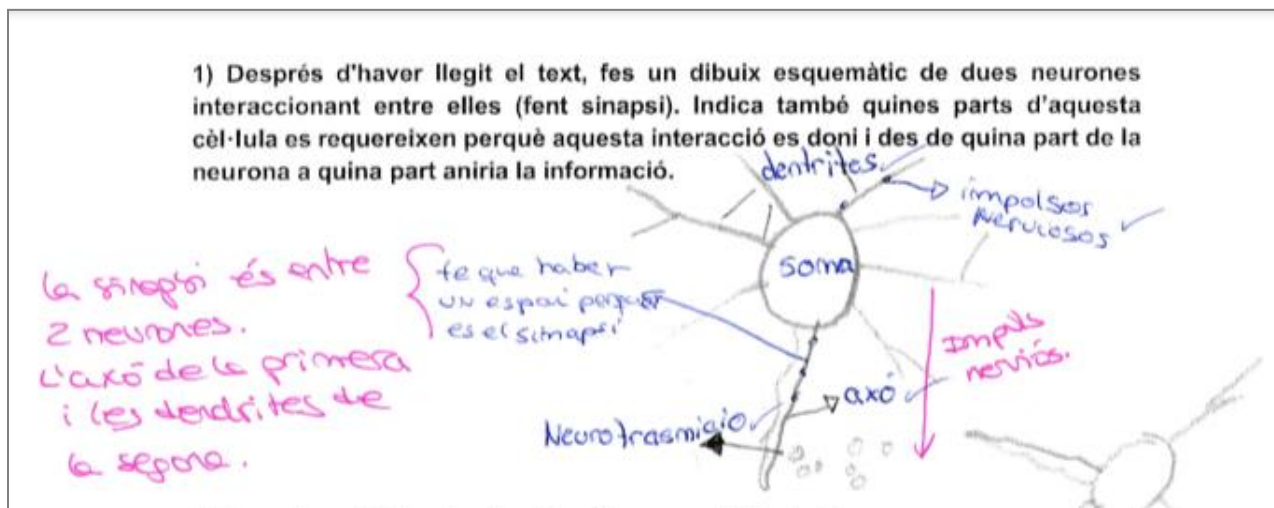 1) Després d'haver llegit el text, fes un dibuix esquemàtic de dues neurones
interaccionant entre elles (fent sinapsi). Indica també quines parts d'aquesta
cèl·lula es requereixen perquè aquesta interacció es doni i des de quina part de la
neurona a quina part aniria la informació.
dentrites
impolsos
nerviosos
soma
te que haber
un espai perquè
es el sinapsi
la sinapsi és entre
2 neurones.
L'axó de la primera
i les dendrites de
la segona.
Impuls
nerviós.
axó
Neurotrasmisio